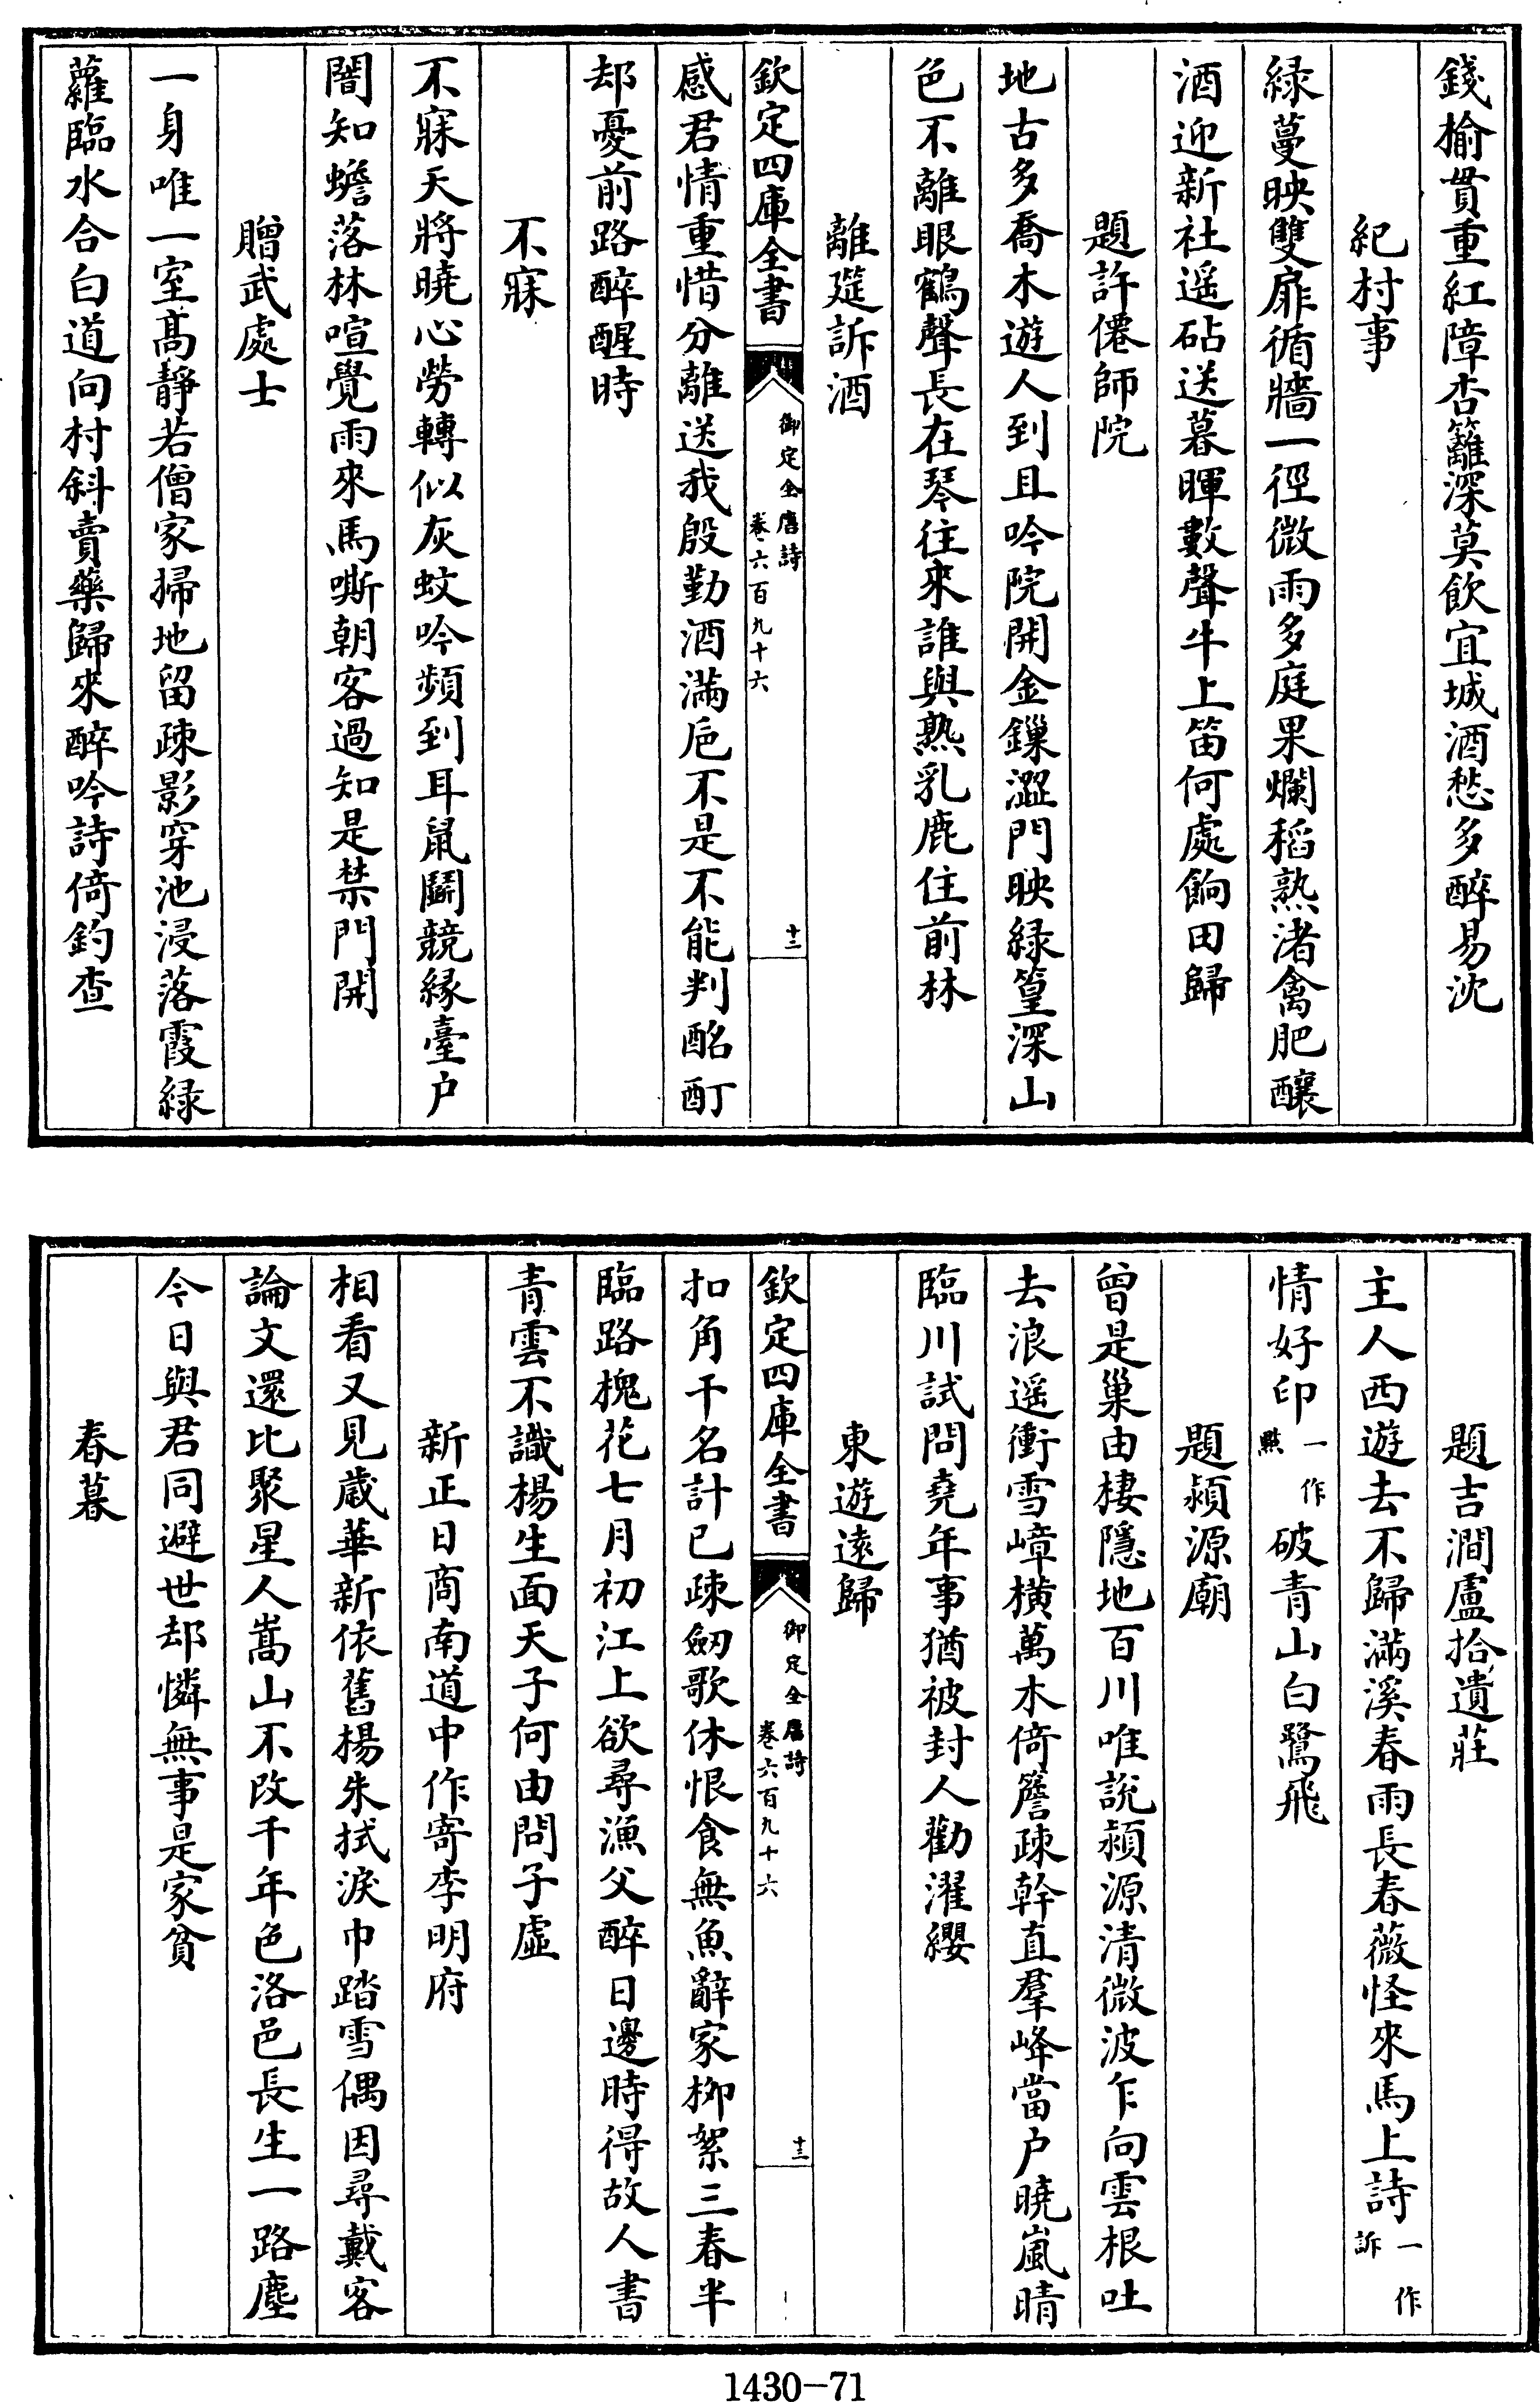 錢榆貫重紅障杏籬深莫飲宜城酒愁多醉易沈
紀村事
緑蔓映雙扉循牆一徑微雨多庭果爛稻熟渚禽肥釀
酒迎新社遥砧送暮暉數聲牛上笛何處餉田歸
題許僊師院
地古多喬木遊人到且吟院開金鏁澀門映緑篁深山
色不離眼鶴聲長在琴往來誰與熟乳鹿住前林
離筵訴酒
欽定四庫全書
御定全唐詩
卷六百九十六
十二
感君情重惜分離送我殷勤酒滿巵不是不能判酩酊
却憂前路醉醒時
不寐
不寐天將曉心勞轉似灰蚊吟頻到耳鼠鬭競緣臺户
闇知蟾落林喧覺雨來馬嘶朝客過知是禁門開
贈武處士
一身唯一室髙靜若僧家掃地留疎影穿池浸落霞緑
蘿臨水合白道向村斜賣藥歸來醉吟詩倚釣查
題吉澗盧拾遺莊
主人西遊去不歸滿溪春雨長春薇怪來馬上詩一作訴
情好印一作點破青山白鷺飛
題潁源廟
曾是巢由棲隱地百川唯說潁源清微波乍向雲根吐
去浪遥衝雪嶂橫萬木倚簷疎幹直羣峰當户曉嵐晴
臨川試問堯年事猶被封人勸濯纓
東遊遠歸
欽定四庫全書
御定全唐詩
卷六百九十六
十三
扣角干名計已疎劒歌休恨食無魚辭家栁絮三春半
臨路槐花七月初江上欲尋漁父醉日邊時得故人書
青雲不識楊生面天子何由問子虛
新正日商南道中作寄李明府
相看又見歲華新依舊楊朱拭淚巾踏雪偶因尋戴客
論文還比聚星人嵩山不改千年色洛邑長生一路塵
今日與君同避世却憐無事是家貧
春暮
1430-71